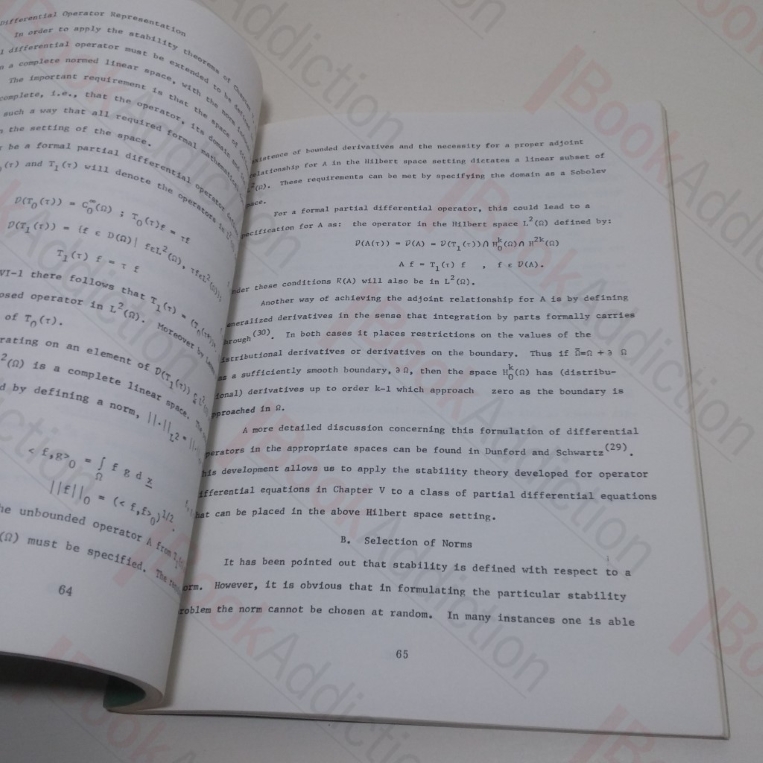 Differential Operator Representation
In order to apply the stability theorems of
differential operator must be extended to be
a complete normed linear space, with the norm
The important requirement is that the space
complete, i.e., that the operator, its domain
such a way that all required formal
the setting of the space.
be a formal partial differential operator
(τ) and T₁(τ) will denote the operators in
D(T₀(τ)) = C₀^∞(Ω) ; T₀(τ)f = τf
D(T₁(τ)) = {f ∈ D(Ω)| fεL²(Ω), τfεL²(Ω)}
T₁(τ) f = τ f
VI-1 there follows that T₁(τ) =
osed operator in L²(Ω). Moreover by
of T₀(τ).
rating on an element of D(T₁(τ))
²(Ω) is a complete linear space.
d by defining a norm, ||·||
< f,g>₀ = ∫ f g d x
Ω
||f||₀ = (< f,f>₀)^1/2
he unbounded operator A from
(Ω) must be specified. The
64
existence of bounded derivatives and the necessity for a proper adjoint
relationship for A in the Hilbert space setting dictates a linear subset of
L²(Ω). These requirements can be met by specifying the domain as a Sobolev
space.
For a formal partial differential operator, this could lead to a
specification for A as: the operator in the Hilbert space L²(Ω) defined by:
D(A(τ)) = D(A) = D(T₁(τ))∩ H₀^k(Ω)∩ H^2k(Ω)
A f = T₁(τ) f , f ε D(A).
Under these conditions R(A) will also be in L²(Ω).
Another way of achieving the adjoint relationship for A is by defining
generalized derivatives in the sense that integration by parts formally carries
through(30). In both cases it places restrictions on the values of the
distributional derivatives or derivatives on the boundary. Thus if Ω̄=Ω + ∂ Ω
as a sufficiently smooth boundary, ∂Ω, then the space H₀^k(Ω) has (distribu-
tional) derivatives up to order k-1 which approach zero as the boundary is
approached in Ω.
A more detailed discussion concerning this formulation of differential
operators in the appropriate spaces can be found in Dunford and Schwartz(29).
his development allows us to apply the stability theory developed for operator
ifferential equations in Chapter V to a class of partial differential equations
hat can be placed in the above Hilbert space setting.
B. Selection of Norms
It has been pointed out that stability is defined with respect to a
orm. However, it is obvious that in formulating the particular stability
roblem the norm cannot be chosen at random. In many instances one is able
65
BookAddiction